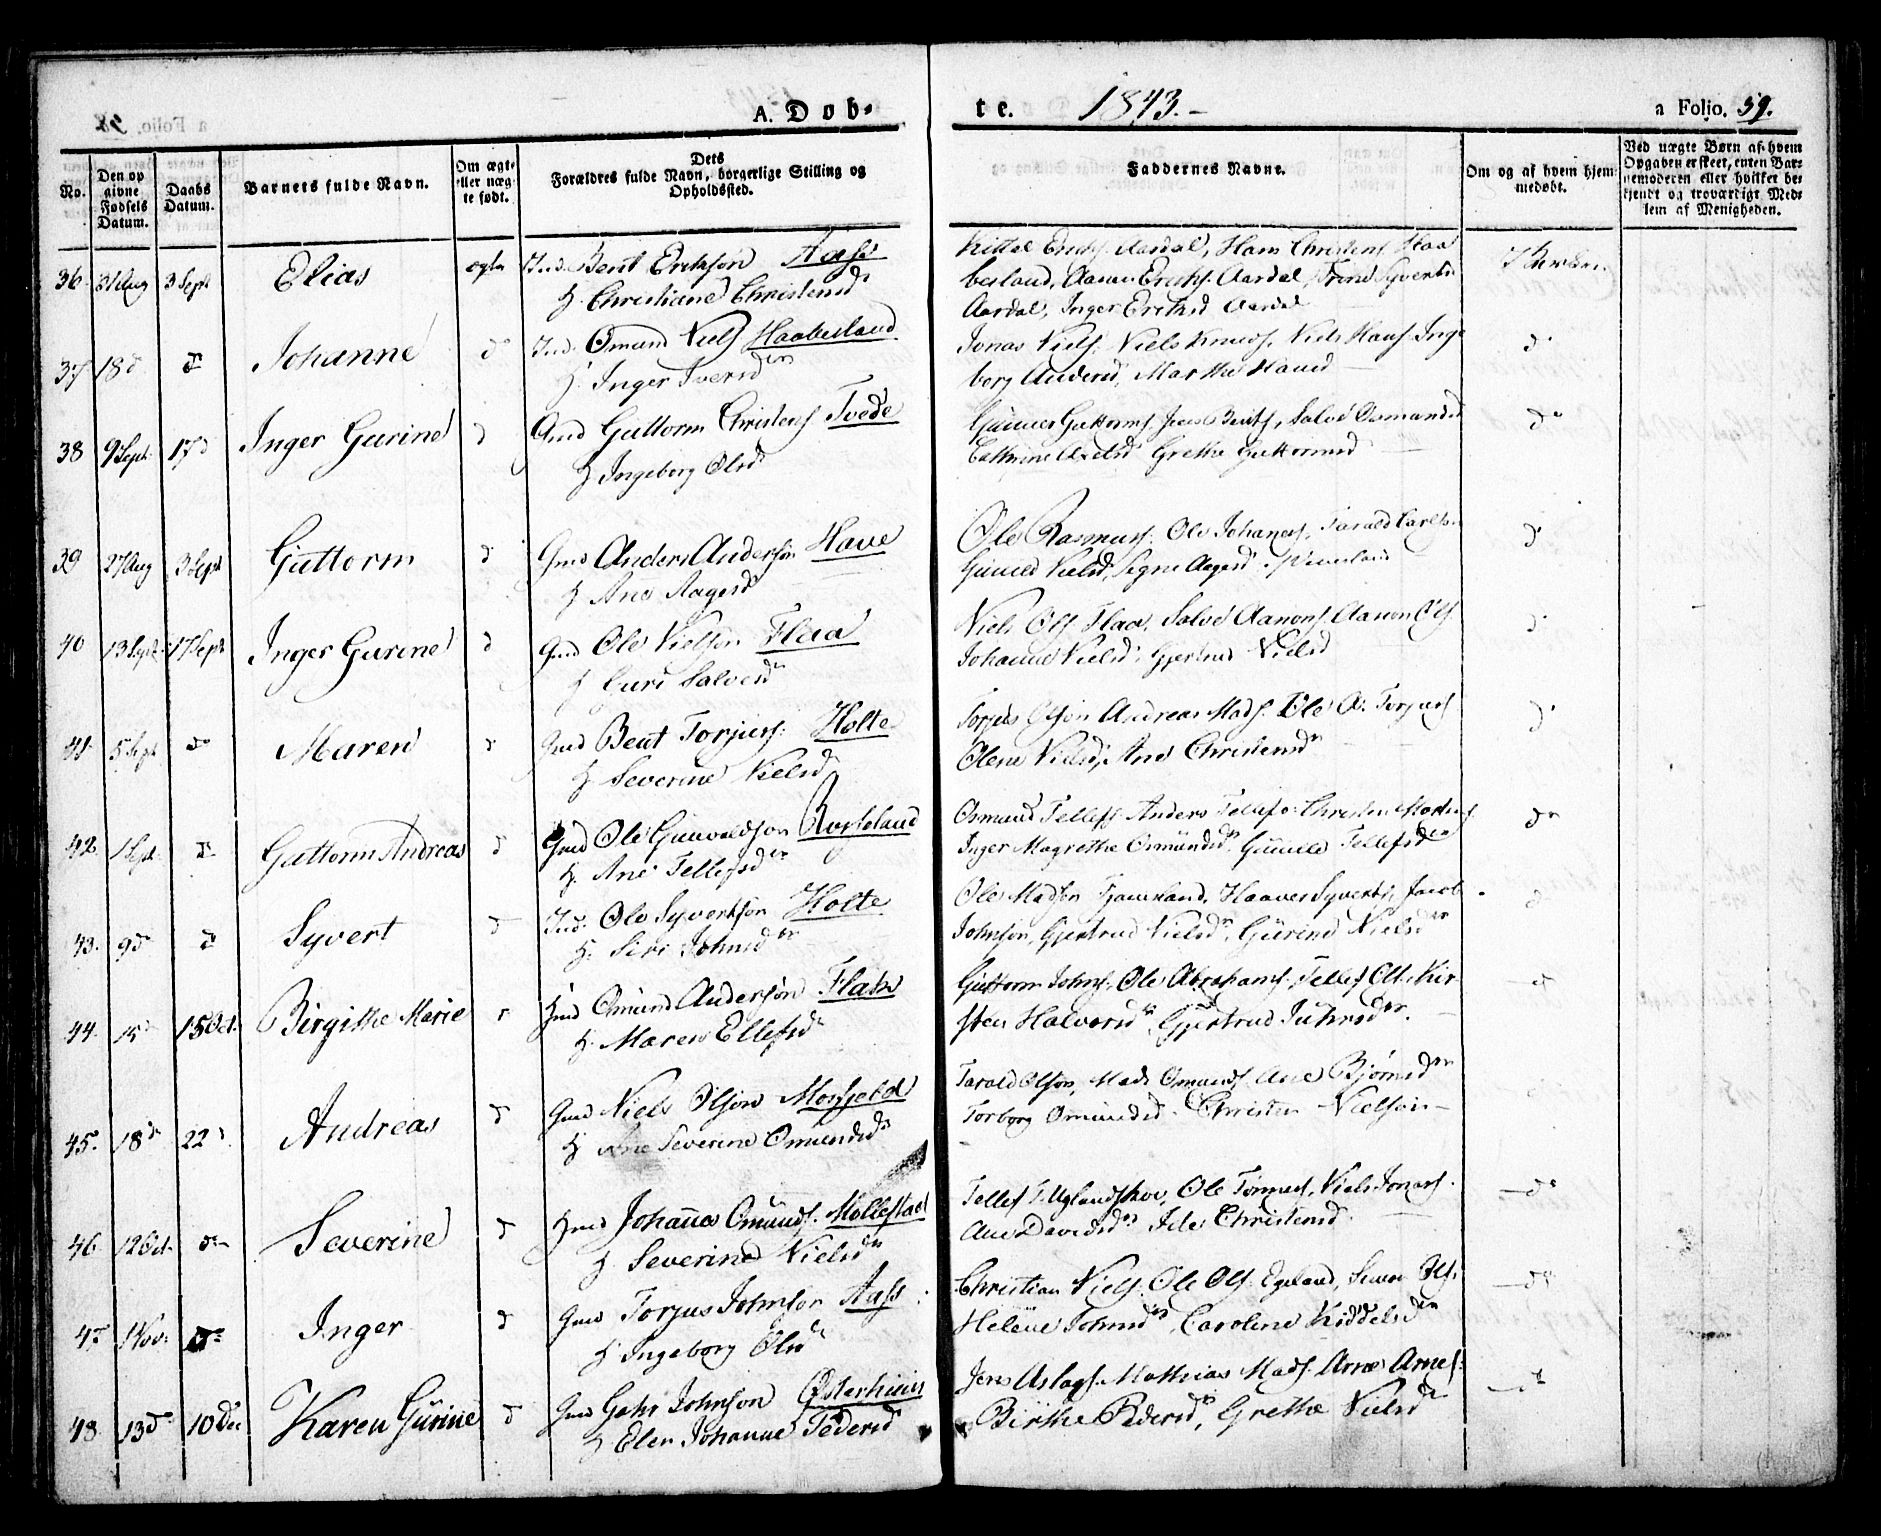 A. Døb-
te. 1843.-
a Folio. 59.
No.
Den op
givne
Fødsels
Datum.
Daabs
Datum.
Barnets fulde Navn.
Om ægt-
eller uæg-
te født.
Dets
Forældres fulde Navn, borgerlige Stilling og
Opholdssted.
Faddernes Navne.
Om og af hvem hjem-
medøbt.
Ved uægte Børn af hvem
Opgaven er skeet, enten Bar-
nemoderen eller hvilket be-
kjendt og troværdigt Med-
lem af Menigheden.
36. 31 Aug 3 Sept Elias ægte Ind. Bent Erikson Aass
H. Christiane Christensd
Kittel Erichs. Aardal, Hans Christens Haa
besland, Aanon Erichs. Aardal, Trine Syverts
Aardal, Inger Eriksd Aardal
37 18 d d Johanne d Ind. Omund Niels Haabesland
H. Inger Iversd
Jonas Niels. Niels Knuds. Niels Hans. Inge
borg Andersd, Marthe Hansd
38 9 Sept. 17 d Inger Gurine d Gmd Guttorm Christens Tvede
H Ingeborg Olsd
Gunner Guttorms. Jens Bents, Salve Osmundsd
Cathrine Axelsd Grethe Guttormsd
39 27 Aug 3 Sept Guttorm d Gmd Anders Anderson Have
H Ane Aagesd
Ole Rasmuss. Ole Johannes. Tarald Carlsen
Gunild Nielsd, Signe Aagesd
40 13 Sept. 17 Sept Inger Gurine d Gmd Ole Nielson Flaa
H Guri Salvesd
Niels Ols Flaa, Salve Aanons. Aanon Ols
Johanne Nielsd. Gjertrud Nielsd
41. 5 Sept do Maren d Gmd Bent Torjus. Holte
H. Severine Nielsd
Torjus Olson Andreas Mads. Ole A. Torjus
Olene Nielsd, Ane Christensd
42 1 Sept. d Guttorm Andreas d Gmd Ole Gunvaldson Rugsland
H. Ane Tellefsd
Osmund Tellefs. Anders Tellefs. Christen Mortens
Inger Magrethe Osmundsd. Gunild Tellefsd
43. 9 d d Syvert d Ind. Ole Syvertson Holte
H. Siri Johnsd
Ole Madson Haaver Syverts, Jacob
Johnson, Gjertrud Nielsd, Gurine Nielsd
44. 15 d 15 Oct. Birgithe Marie d Gmd Omund Anderson Flak
H. Maren Ellefsd
Guttorm Johns. Ole Abrahams. Tellef Ols. Kir-
sten Halvorsd, Gjertrud Juhnsd.
45. 18 d 22 d Andreas d Gmd Niels Olson Mosfjeld
H Ane Severine Omundsd
Tarald Olson, Mads Omunds. Ane Bjørnsd
Torborg Omundsd. Christen Nielson-
46 12 Oct. d Severine d Gmd Johannes Omunds. Mollestad
H Severine Nielsd
Tellef T. Uglandskov, Ole Tønnes, Niels Jonas.
Ane Davidsd Ide Christensd.
47 1 Nov. d Inger d Gmd Torjus Johnson Aass
H Ingeborg Olsd
Christian Niels. Ole Ols. Egeland, Simon Ols.
Helene Johnsd, Caroline Kiddelsd
48. 13 d 10 Dec Karen Gurine d Gmd Gahr Johnson Østerhuus
H Elen Johanne Pedersd
Jens Aslags. Mathias Mads. Arne Arnes.
Birthe Pedersd, Grethe Nielsd